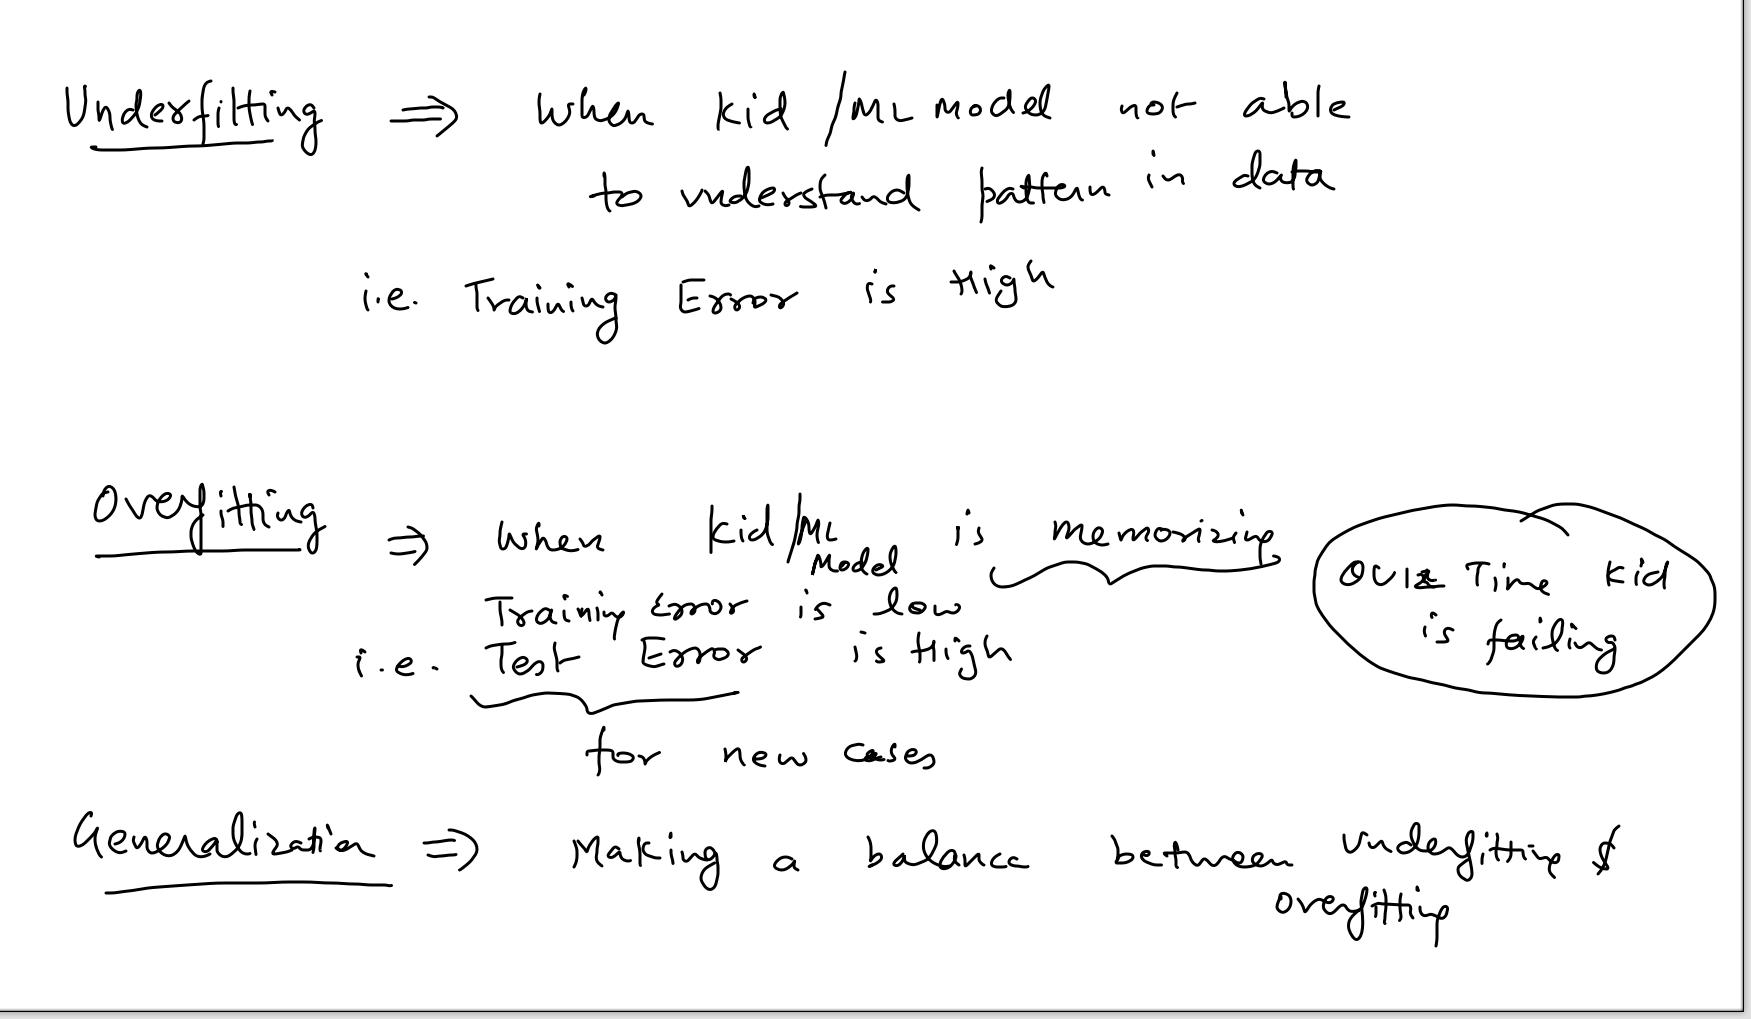 Underfitting ⇒ When kid /ML Model not able
to understand pattern in data
i.e. Training Error is High
Overfitting ⇒ When kid/ML Model is memorizing
Training Error is low
i.e. Test Error is High
for new cases
QUIZ Time kid
is failing
Generalization ⇒ Making a balance between underfitting &
overfitting